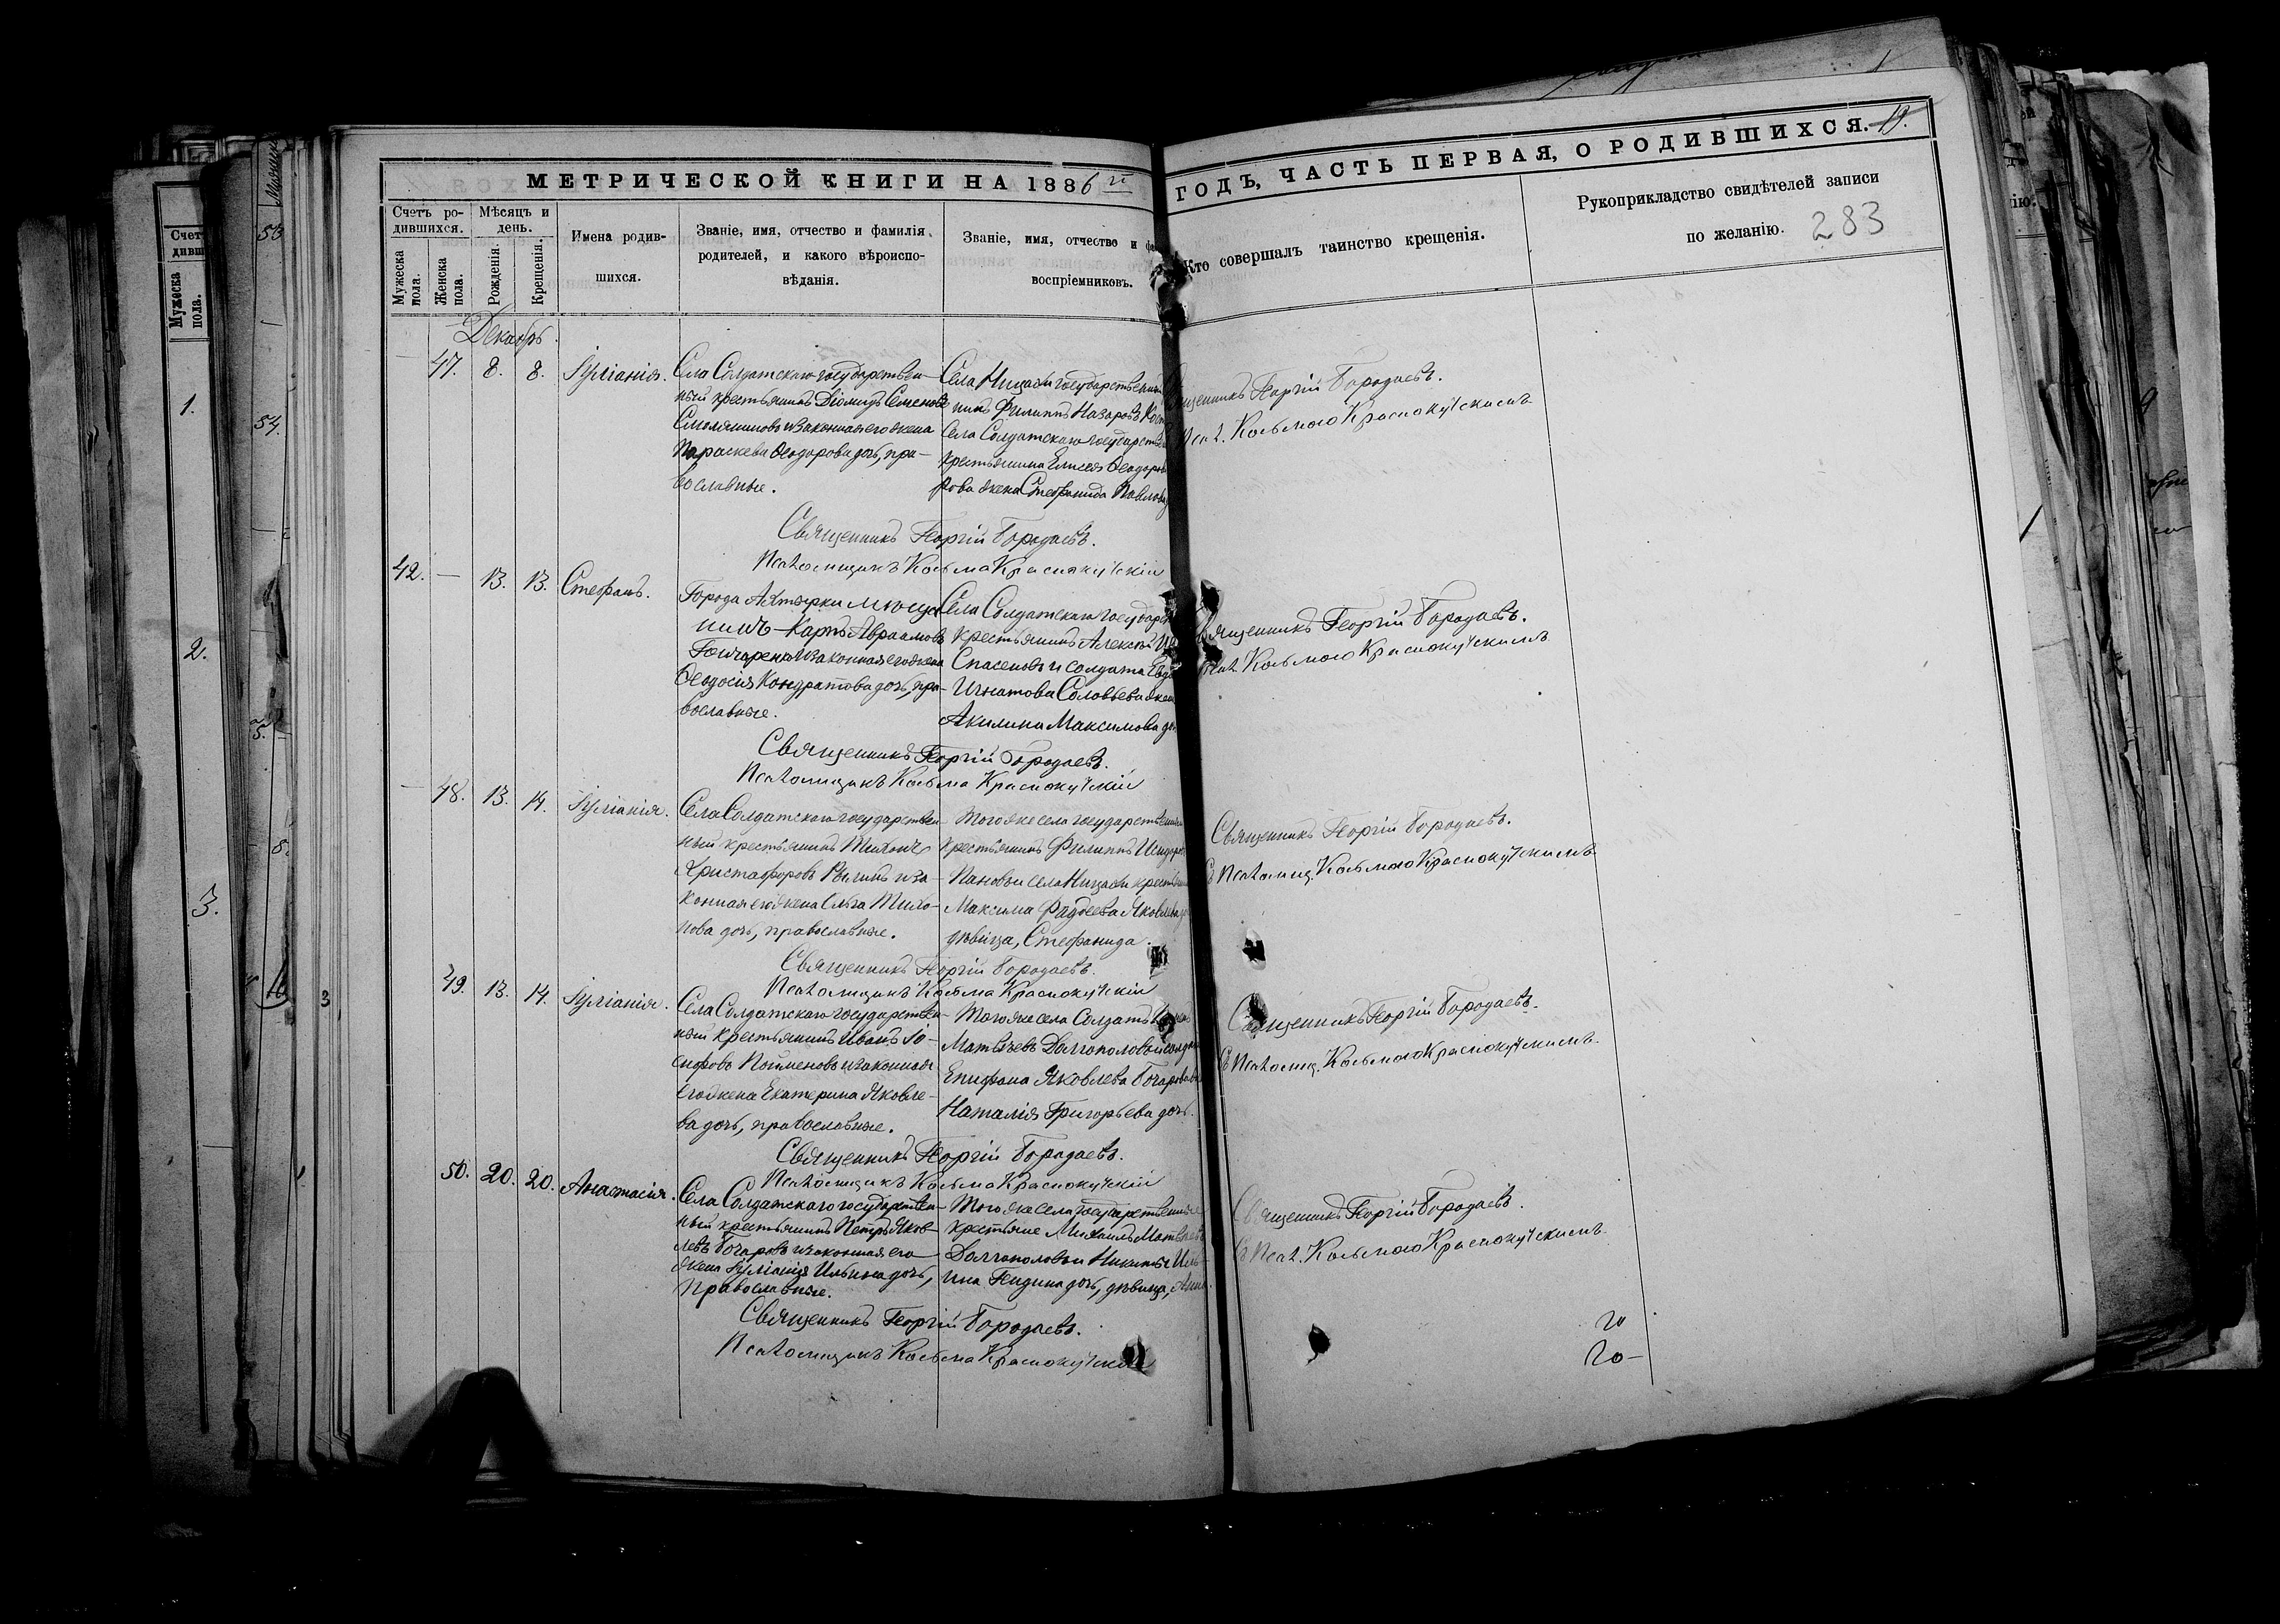 МЕТРИЧЕСКОЙ КНИГИ НА 1886 й
ГОДЪ, ЧАСТЬ ПЕРВАЯ, О РОДИВШИХСЯ. 19.
Счетъ ро-
дившихся.
Мѣсяцъ и
день.
Мужеска пола.
Женска пола.
Рожденія.
Крещенія.
Имена родив-
шихся.
Званіе, имя, отчество и фамилія
родителей, и какого вѣроиспо-
вѣданія.
Званіе, имя, отчество и
воспріемниковъ.
Кто совершалъ таинство крещенія.
Рукоприкладство свидѣтелей записи
по желанію. 283
Декабрь.
47. 8. 8. Іуліанія.
Села Солдатскаго государствен-
ный крестьянинъ Діомидъ Семеновъ
Смольяниновъ и законная его жена
Параскева Ѳеодорова дочь, пра-
вославные.
Села Ницахи государственный
нинъ Филиппъ Назаровъ
Села Солдатскаго государствен
крестьянина Елисея Ѳеодоров
рова жена Стефанида Павлова
Священникъ Георгій Бородаевъ.
Псал. Козьмою Краснокутскимъ
Священникъ Георгій Бородаевъ.
Псаломщикъ Козьма Краснокутскій
42. — 13. 13. Стефанъ.
Города Ахтырки мѣща
нинъ Карпъ Авраамовъ
Гончаренко и законная его жена
Ѳеодосія Кондратова дочь, пра-
вославные.
Села Солдатскаго государ
крестьянинъ Алексѣй
Спасеновъ и солдата
Игнатова Соловьева жена
Акилина Максимова до
Священникъ Георгій Бородаевъ.
Псал. Козьмою Краснокутскимъ
Священникъ Георгій Бородаевъ.
Псаломщикъ Козьма Краснокутскій
— 48. 13. 14. Іуліанія.
Села Солдатскаго государствен-
ный крестьянинъ Тихонъ
Христофоровъ Рылинъ и за-
конная его жена Ольга Тихо-
нова дочь, православные.
Того же села государственный
крестьянинъ Филиппъ
Пановъ и села Ницахи крестьян
Максима Фадѣева Яковлева
дѣвица, Стефанида.
Священникъ Георгій Бородаевъ.
съ Псаломщ. Козьмою Краснокутскимъ
Священникъ Георгій Бородаевъ.
Псаломщикъ Козьма Краснокутскій
49. 13. 14. Іуліанія.
Села Солдатскаго государствен-
ный крестьянинъ Иванъ Іо-
сифовъ Пойменовъ и законная
его жена Екатерина Яковле-
ва дочь, православные.
Того же села Солдатъ
Матвѣевъ Долгополовъ и солда
Епифана Яковлева Бочарова
Наталія Григорьева дочь.
Священникъ Георгій Бородаевъ.
съ Псаломщ. Козьмою Краснокутскимъ
Священникъ Георгій Бородаевъ.
Псаломщикъ Козьма Краснокутскій
50. 20. 20. Анастасія.
Села Солдатскаго государствен-
ный крестьянинъ Петръ Яков-
левъ Бочаровъ и законная его
жена Іуліанія Ильина дочь,
православные.
Того же села государственные
крестьяне Михаилъ Матвѣевъ
Долгополовъ и Никиты Иль-
ина дочь, дѣвица, Анна.
Священникъ Георгій Бородаевъ.
съ Псал. Козьмою Краснокутскимъ
Священникъ Георгій Бородаевъ.
Псаломщикъ Козьма Краснокутскій